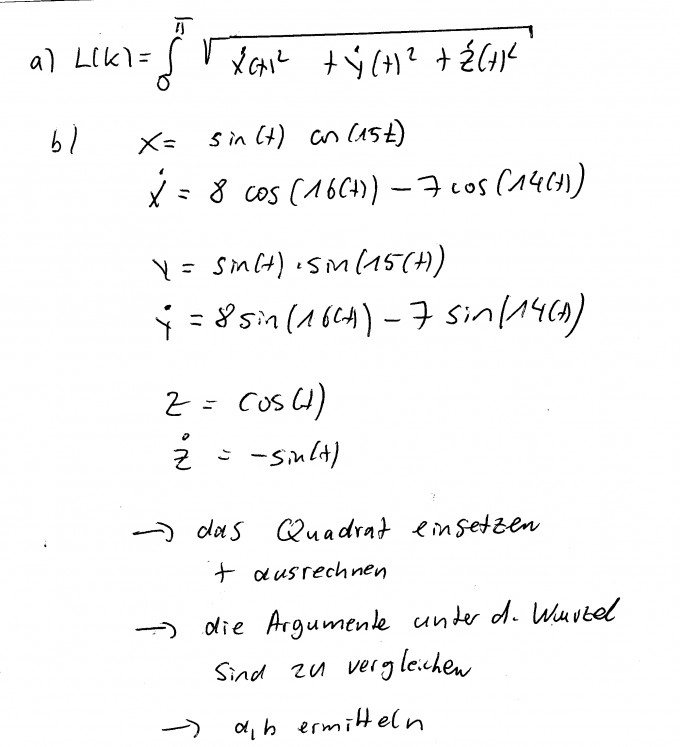 a) L(k) = ∫₀^π √ ẋ(t)² + ẏ(t)² + ż(t)²
b) x = sin(t) cos(15t)
ẋ = 8 cos(16(t)) − 7 cos(14(t))
y = sin(t) · sin(15(t))
ẏ = 8 sin(16(t)) − 7 sin(14(t))
z = cos(t)
ż = −sin(t)
→ das Quadrat einsetzen
+ ausrechnen
→ die Argumente unter d. Wurzel
sind zu vergleichen
→ a, b ermitteln